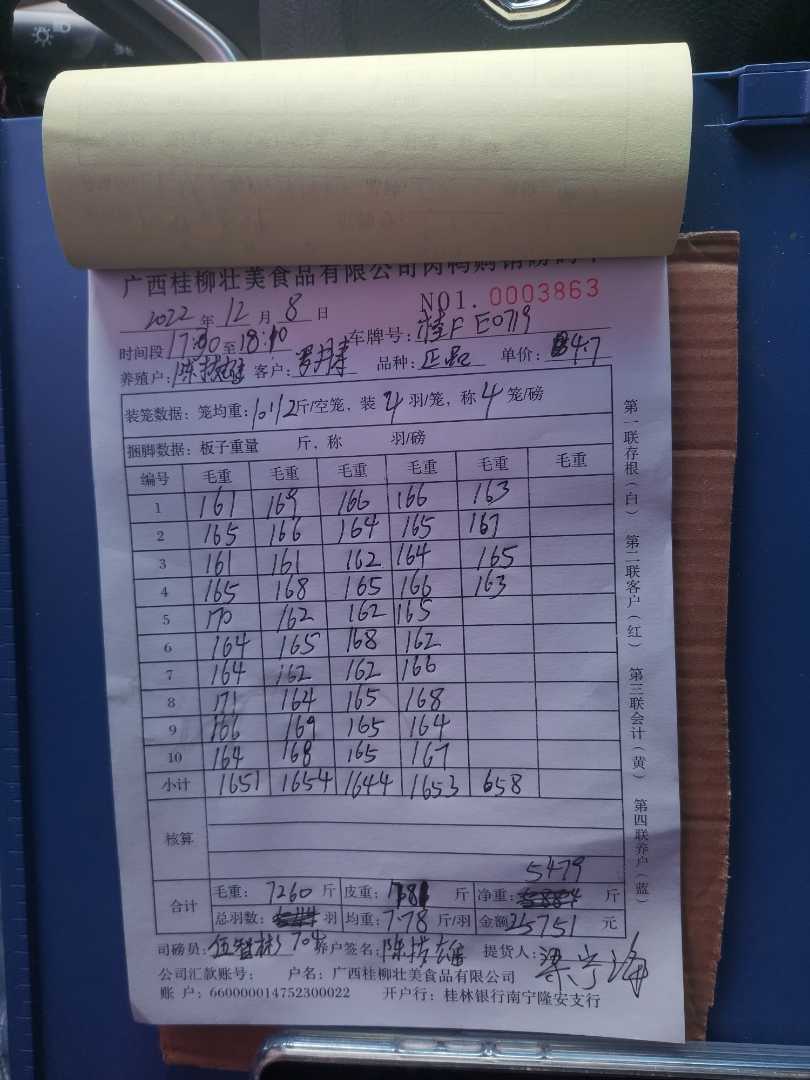 广西桂柳壮美食品有限公司肉鸭购销磅码单
NO1. 0003863
2022 年 12 月 8 日
时间段 17:00 至 18:10 车牌号: 桂F E0719
养殖户: 陈技雄 客户: 品种: 正品 单价: 4.7
装笼数据: 笼均重: 10.12 斤/空笼, 装 4 羽/笼, 称 4 笼/磅
捆脚数据: 板子重量 斤, 称 羽/磅
编号 毛重 毛重 毛重 毛重 毛重 毛重
1 161 169 166 166 163
2 165 166 164 165 167
3 161 161 162 164 165
4 165 168 165 166 163
5 170 162 162 165
6 164 165 168 162
7 164 162 162 166
8 171 164 165 168
9 166 169 165 164
10 164 168 165 167
小计 1651 1654 1644 1653 658
核算
5479
合计 毛重: 7260 斤 皮重: 1781 斤 净重: 斤
总羽数: 羽 均重: 7.78 斤/羽 金额: 25751 元
704
司磅员: 伍智彬 养户签名: 陈技雄 提货人: 梁宁海
公司汇款账号: 户名: 广西桂柳壮美食品有限公司
账 户: 660000014752300022 开户行: 桂林银行南宁隆安支行
第一联存根(白) 第二联客户(红) 第三联会计(黄) 第四联养户(蓝)